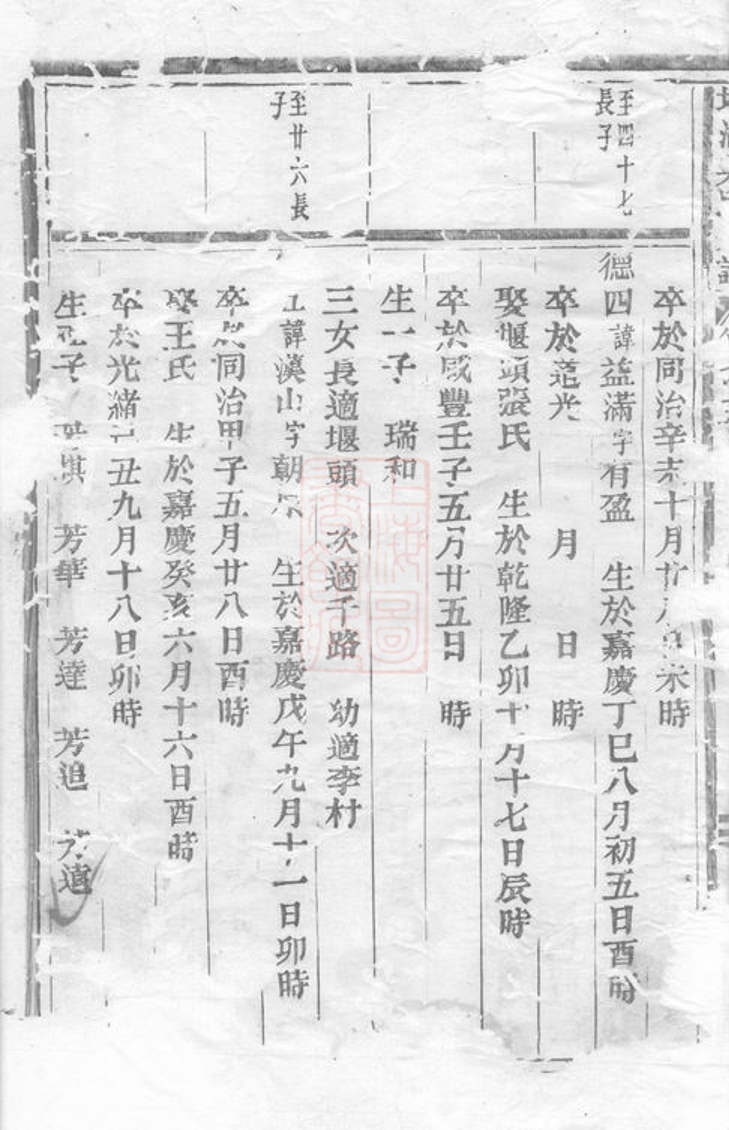 卒於同治辛未十月廿 未時
至四十七
長子
德四諱益滿字有盈 生於嘉慶丁巳八月初五日酉時
卒於道光 月 日 時
娶堰頭張氏 生於乾隆乙卯十 月十七日辰時
卒於咸豐壬子五月廿五日 時
生一子 瑞和
三女長適堰頭 次適千路 幼適李村
至廿六長
子
諱漢山字朝 生於嘉慶戊午九月十一日卯時
卒於同治甲子五月廿八日酉時
娶王氏 生於嘉慶癸亥六月十六日酉時
卒於光緒己丑九月十八日卯時
生五子 芳祺 芳華 芳達 芳追 芳遠
上海圖
書館藏